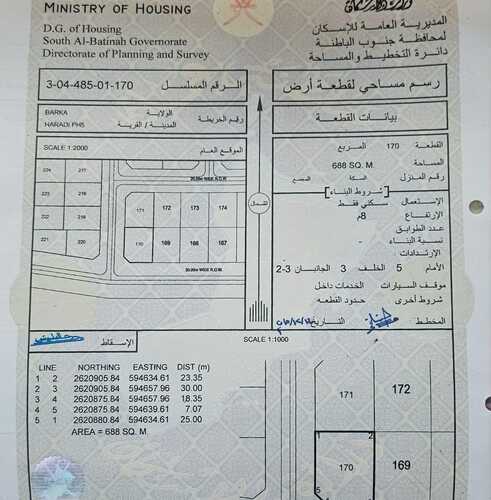 MINISTRY OF HOUSING
D.G. of Housing
South Al-Batinah Governorate
Directorate of Planning and Survey
المديرية العامة للإسكان
لمحافظة جنوب الباطنة
دائرة التخطيط والمساحة
3-04-485-01-170 الرقم المسلسل
رسم مساحي لقطعة أرض
BARKA الولاية
HARADI PH5 المدينة / القرية
رقم الخريطة
بيانات القطعة
SCALE 1:2000 الموقع العام
القطعة 170 المربع
المساحة 688 SQ. M.
رقم المنزل السكة المجمع
شروط البناء
الإستعمال سكني فقط
الإرتفاع 8م
عدد الطوابق
نسبة البناء
الإرتدادات
الأمام 5 الخلف 3 الجانبان 3-2
موقف السيارات الخدمات داخل
شروط أخرى حدود القطعه
المخطط التاريخ
224 217
221 220
20.00m WIDE R.O.W.
171 172 173 174
170 169 168 167
20.00m WIDE R.O.W.
الشمال
الإسقاط
SCALE 1:1000
LINE NORTHING EASTING DIST (m)
1 2 2620905.84 594634.61 23.35
2 3 2620905.84 594657.96 30.00
3 4 2620875.84 594657.96 18.35
4 5 2620875.84 594639.61 7.07
5 1 2620880.84 594634.61 25.00
AREA = 688 SQ. M.
171 172
1 2
170 169
5